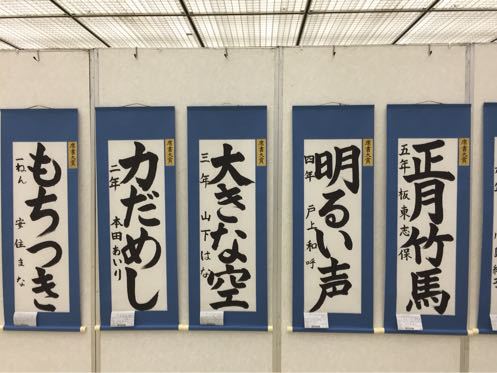 もちつき
一ねん
安住まな
席書大賞
力だめし
二年
本田あいり
席書大賞
大きな空
三年
山下はな
席書大賞
明るい声
四年
戸上和呼
席書大賞
正月竹馬
五年
板東志保
席書大賞